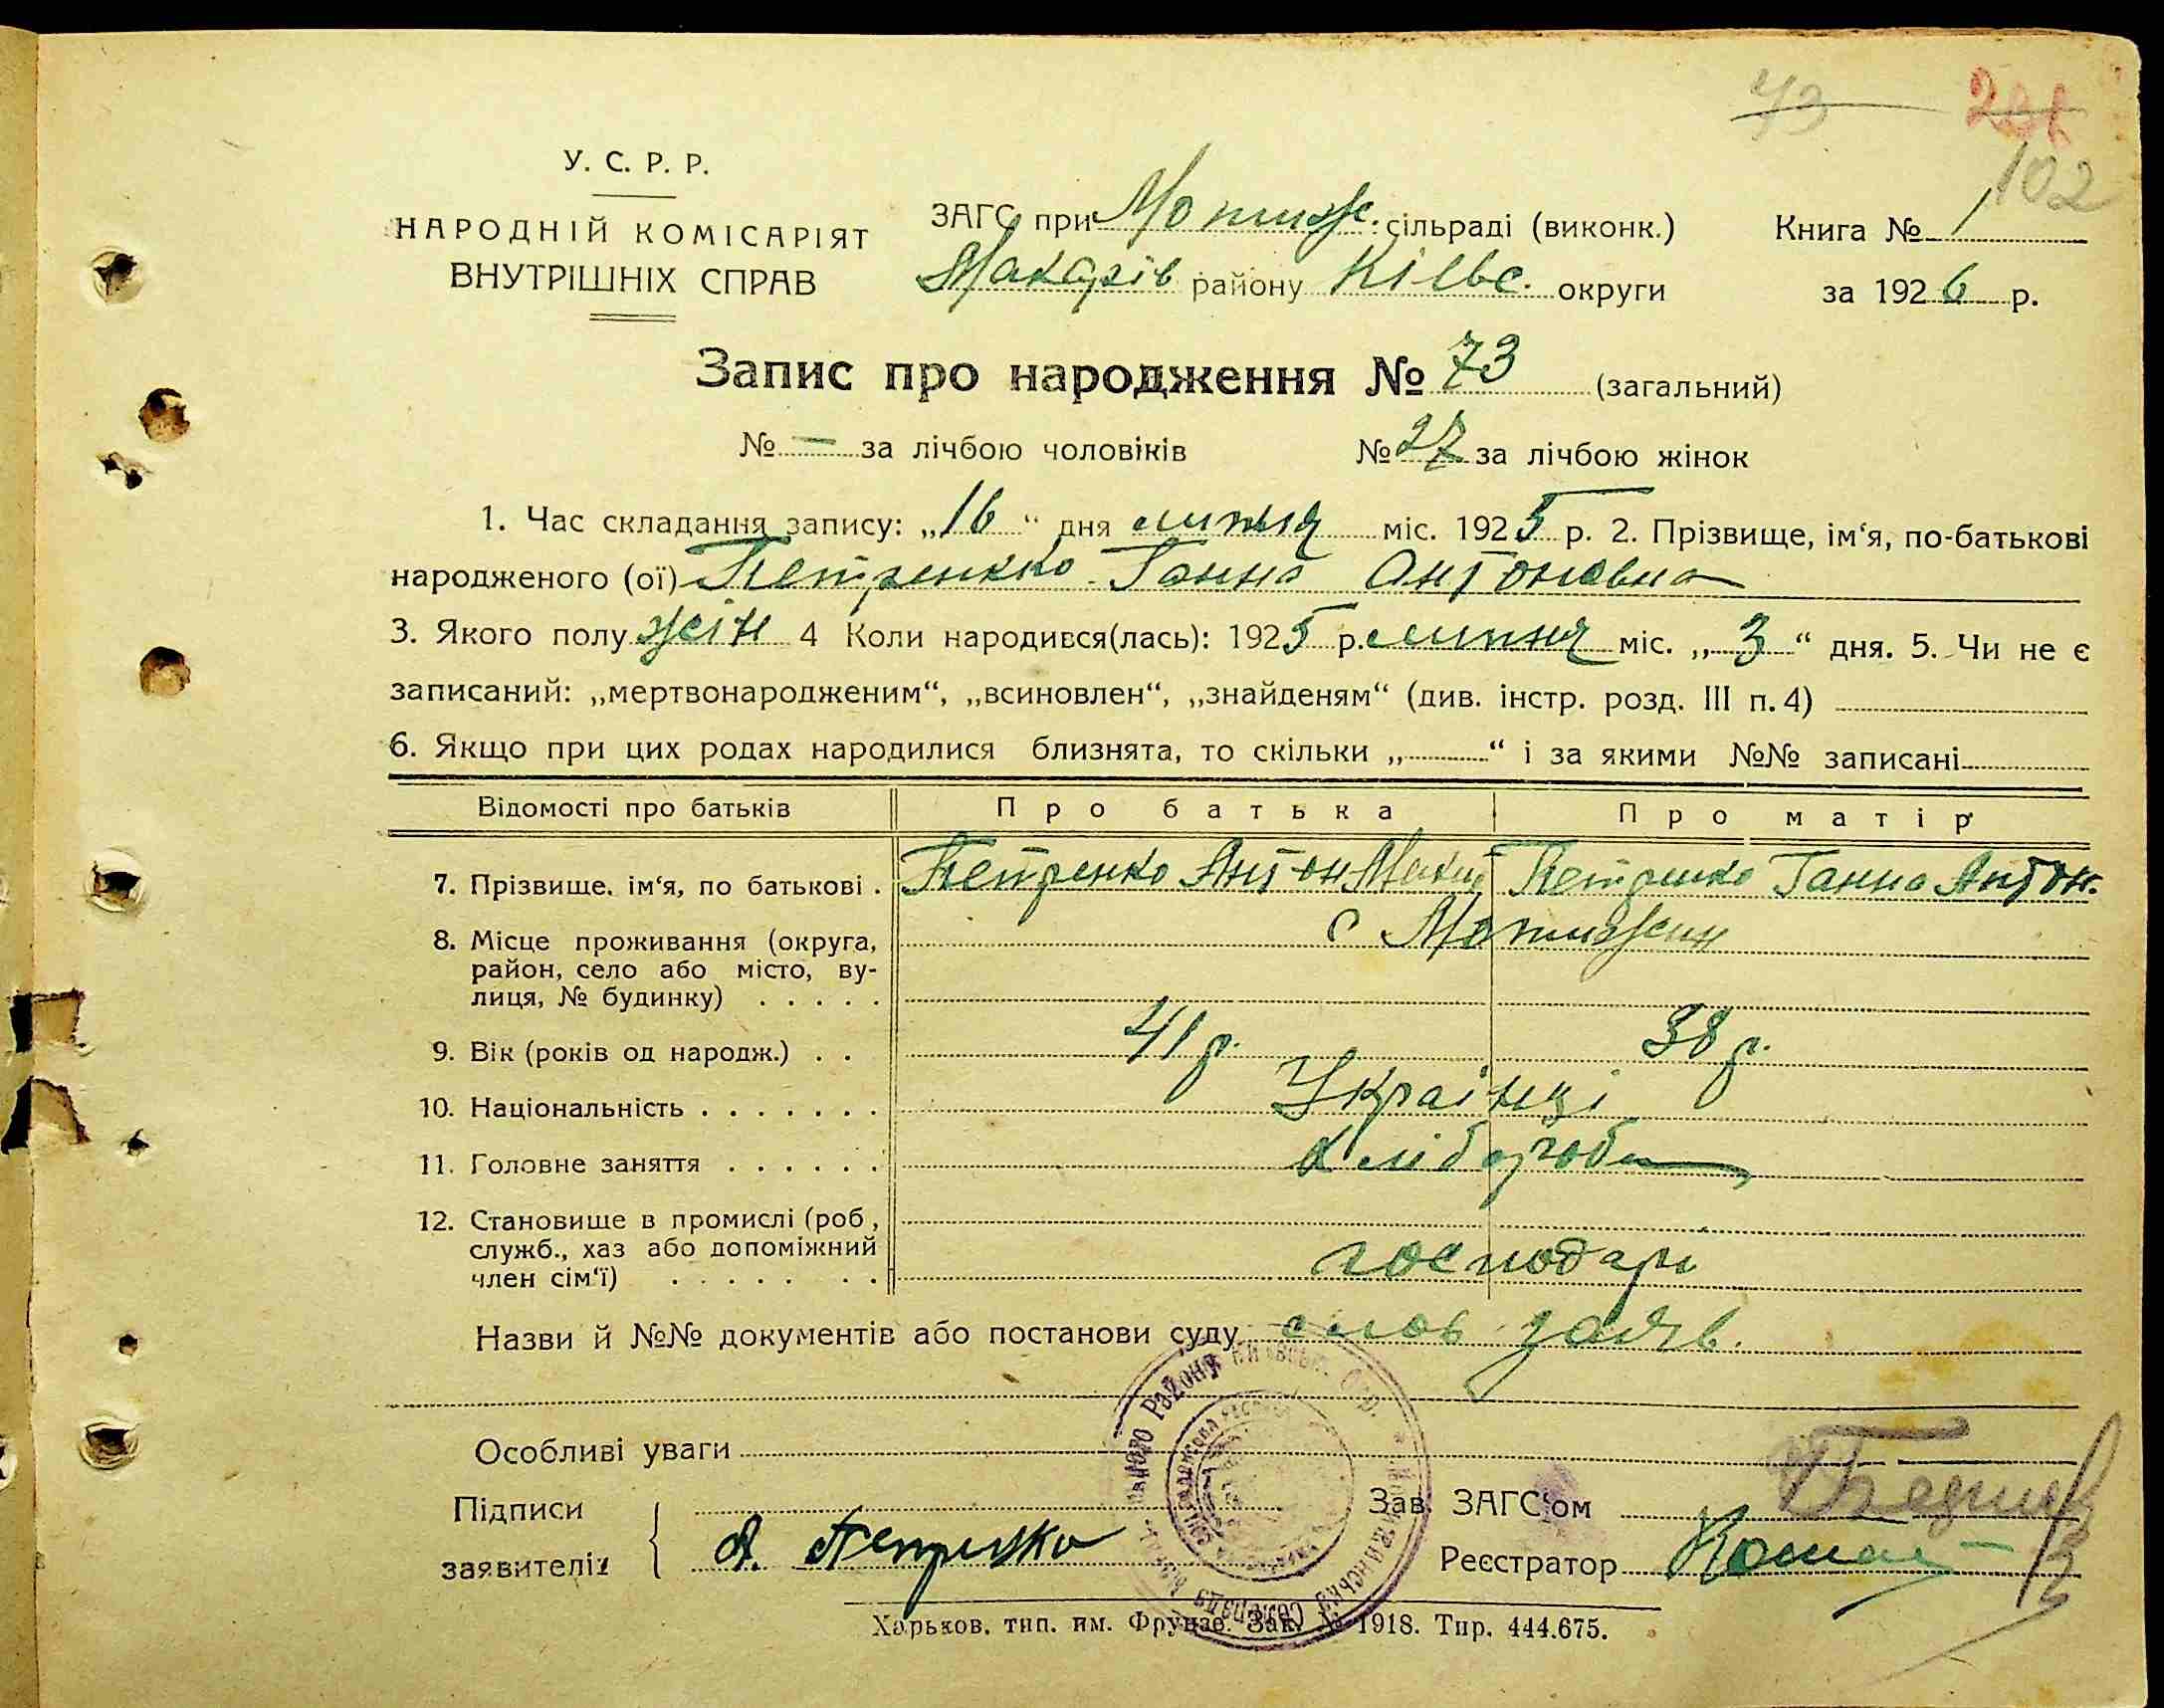 73 102
У. С. Р. Р.
НАРОДНІЙ КОМІСАРІЯТ
ВНУТРІШНІХ СПРАВ
ЗАГС при Мотиж. сільраді (виконк.) Книга № 1
Макарів району Київс. округи за 1926 р.
Запис про народження № 73 (загальний)
№ — за лічбою чоловіків № 27 за лічбою жінок
1. Час складання запису: „16“ дня липня міс. 1925 р. 2. Прізвище, ім‘я, по-батькові
народженого (ої) Петренко Ганна Антоновна
3. Якого полу жін 4 Коли народився(лась): 1925 р. липня міс. „3“ дня. 5. Чи не є
записаний: „мертвонародженим“, „всиновлен“, „знайденям“ (див. інстр. розд. III п. 4)
6. Якщо при цих родах народилися близнята, то скільки „ “ і за якими №№ записані
Відомості про батьків Про батька Про матір
7. Прізвище, ім‘я, по батькові . Петренко Антон Петренко Ганна Антон.
8. Місце проживання (округа, с Мотижин
район, село або місто, ву-
лиця, № будинку) . . . . .
9. Вік (років од народж.) . . 41 р. 38 р.
10. Національність . . . . . . . Українці
11. Головне заняття . . . . . . хлібороби
12. Становище в промислі (роб,
служб., хаз або допоміжний
член сім‘ї) . . . . . . . господарі
Назви й №№ документів або постанови суду слов заяв.
Особливі уваги
Підписи Зав. ЗАГС‘ом
заявителів А. Петренко Реєстратор
Харьков. тип. им. Фрунзе. Зак. № 1918. Тир. 444.675.